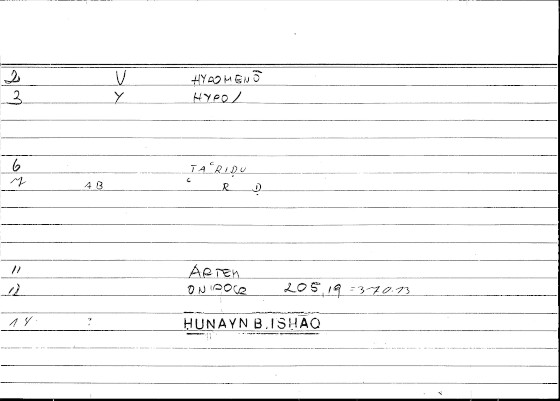 2 V HYPOMENŌ
3 Y HYPO/
6 TAʿRĪḌU
7 AB ʿ R Ḍ
11 ARTEM
12 ONIROCR 205,19 = 370.13
14 ? ḤUNAYN B. ISḤĀQ